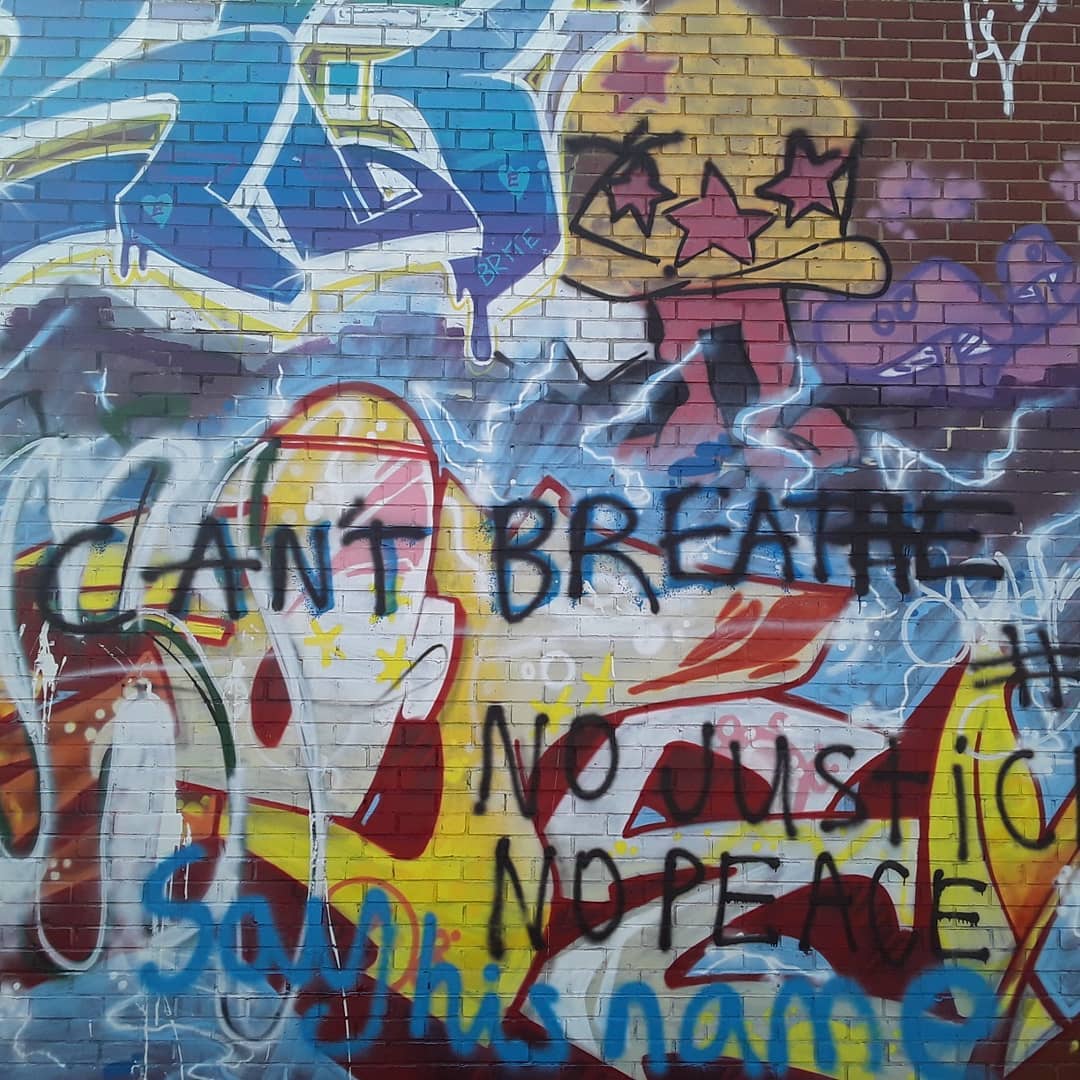 BRITE
CAN'T BREATHE
#
NO JUSTIC
NO PEACE
Say his name